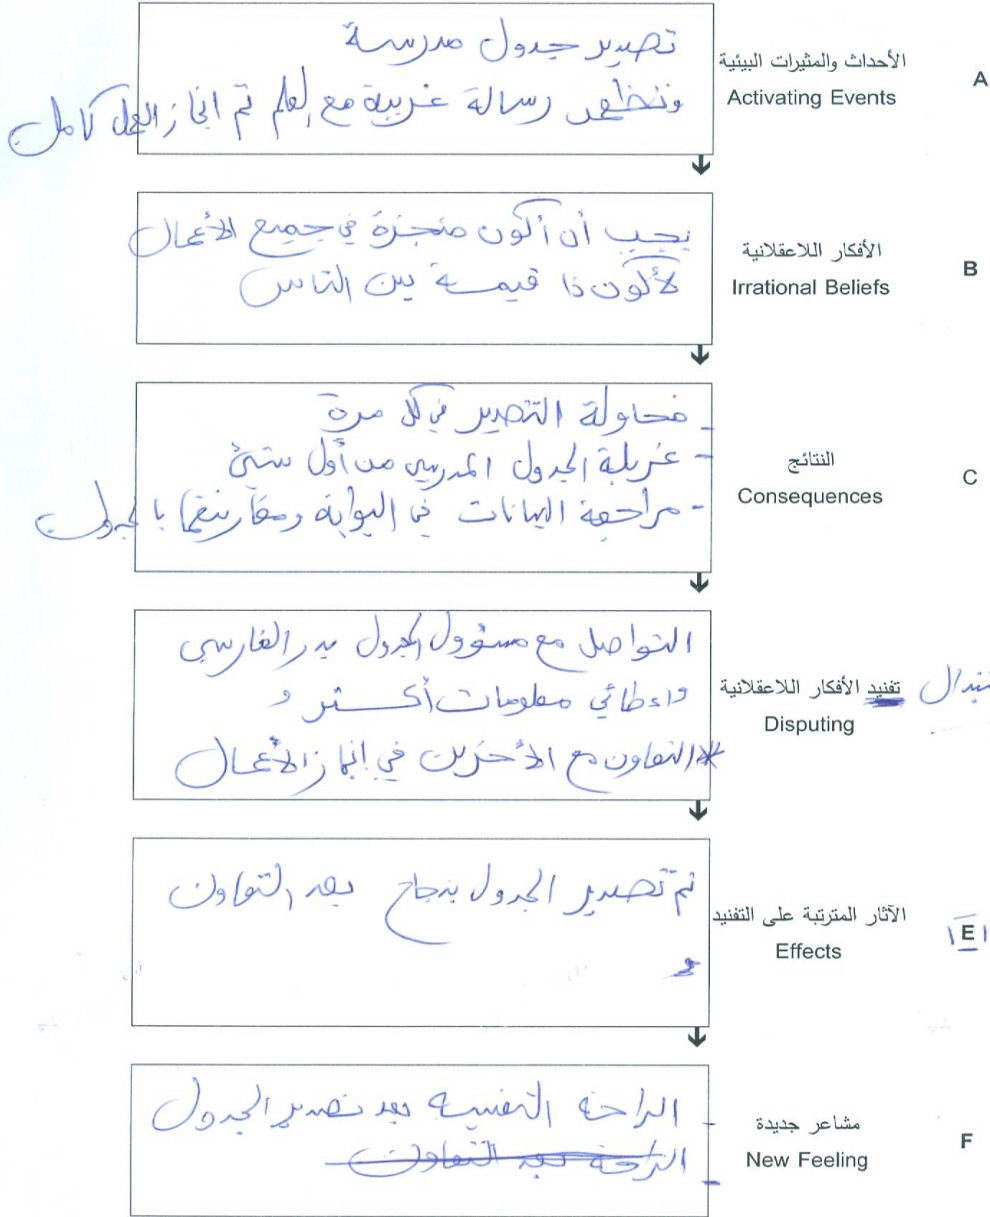 تصدير جدول مدرسة
وتظهر رسالة غريبة مع العلم تم انجاز العمل كامل
الأحداث والمثيرات البيئية
Activating Events
A
يجب أن أكون منجزة في جميع الأعمال
لأكون ذا قيمة بين الناس
الأفكار اللاعقلانية
Irrational Beliefs
B
- محاولة التصدير في كل مرة
- غربلة الجدول المدرسي من أول شئ
- مراجعة البيانات في البوابة ومقارنتها بالجدول
النتائج
Consequences
C
التواصل مع مسؤول الجدول بدر الفارسي
واعطائي معلومات أكثر و
* التعاون مع الأخرين في انجاز الأعمال
تفنيد الأفكار اللاعقلانية
Disputing
تم تصدير الجدول بنجاح بعد التعاون
الآثار المترتبة على التفنيد
Effects
E
- الراحة النفسية بعد تصدير الجدول
- الراحة بعد التعاون
مشاعر جديدة
New Feeling
F